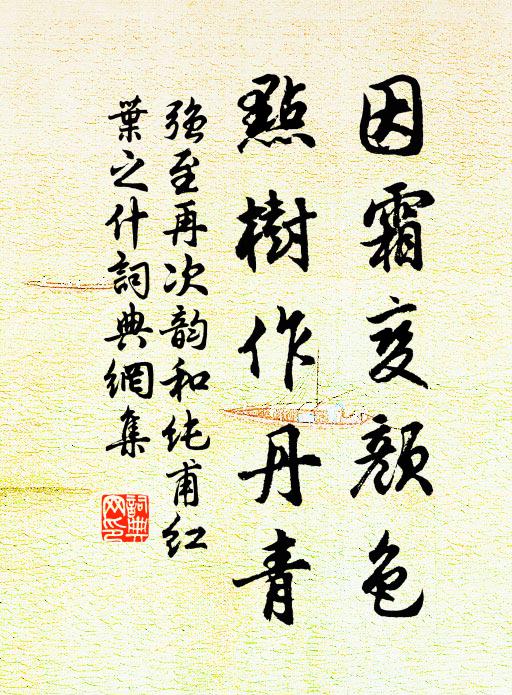 因霜变颜色
點樹作丹青
強至再次韵和纯甫红
葉之什詞典網集
詞典
网印